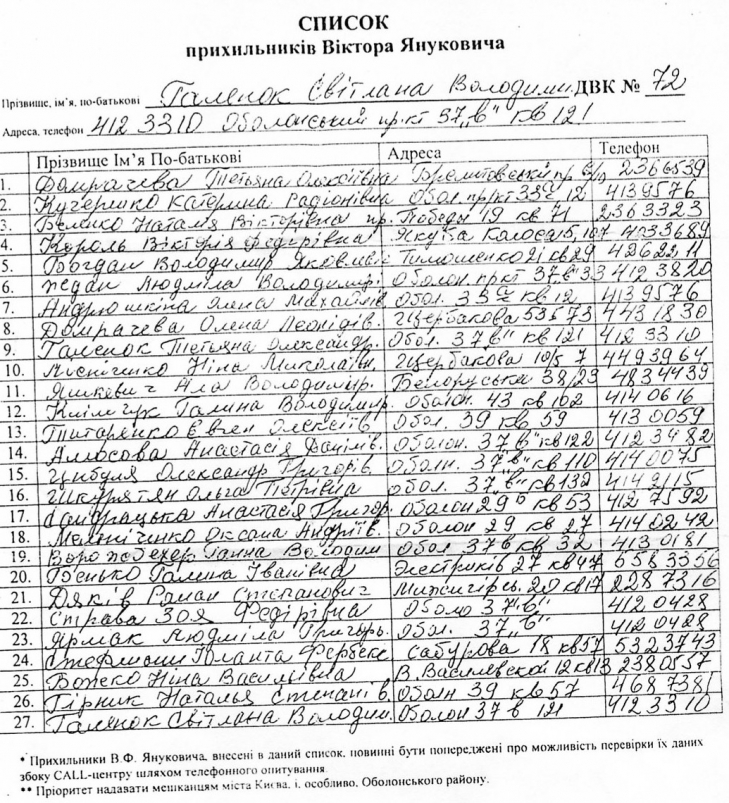 СПИСОК
прихильників Віктора Януковича
Прізвище, ім'я, по-батькові Галенок Світлана Володими. ДВК № 72
Адреса, телефон 412 3310 Оболонський пр.кт 37 „в" кв 121
Прізвище Ім'я По-батькові Адреса Телефон
1. Домрачева Тетьяна 2366539
2. Кучеренко Катерина Радіонівна Обол. пр/кт 33а 12 4139576
3. Наталія Вікторівна пр. Победы 19 кв 71 2363323
4. Король Вікторія Федерівна Якуба Коласа 4033689
5. Богдан Володимир Тимошенко 21 кв 29 4262211
6. Людміла Володимір. Оболон. пркт 37 „в" 33 4123820
7. Андрюшкіна Олена Обол. 33а кв 12 4139576
8. Домрачева Олена Леонідів. Щербакова 4431830
9. Галенок Тетьяна Олександр. Обол. 37 „в" кв 121 4123310
10. Ніна Миколаївн. Щербакова 10/5 7 4493964
11. Яшкевич Ала Володимир. Белоруська 38/29 4834439
12. Клімчук Галина Володимир. Оболон. 43 кв 102 4140616
13. Титаренко Євген Олексіїв Обол. 39 кв 59 4130059
14. Анастасія Данілів. Оболон. 37 в" кв 122 4123482
15. Цибуля Олександр Григорів. Оболон. 37 „в" кв 110 4140075
16. Ольга Петрівна обол. 37 „в" кв 132 4142115
17. Анастасія Григор. оболон 29 кв 53 4127592
18. Оксана Андріїв. Оболон 29 кв 27 4140242
19. Ганна Володим Обол 37 в кв 32 4130181
20. Бенько Галина Іванівна кв 47 6583356
21. Дяків Роман Степанович 20 кв 17 2287316
22. Страва Зоя Федірівна Оболо 37 „в" 4120428
23. Ярмак Людміла Григорь. Обол. 37 „в" 4120428
24. Іоланта Сабурова 18 кв 57 5323743
25. Божеко Ніна Васильівна В. Василевской 12 кв 13 2380557
26. Гірник Наталья Степанів. Оболн 39 кв 57 4687381
27. Галенок Світлана Володим. Оболон 37 в 121 4123310
* Прихильники В.Ф. Януковича, внесені в даний список, повинні бути попереджені про можливість перевірки їх даних
збоку CALL-центру шляхом телефонного опитування.
** Пріоритет надавати мешканцям міста Києва, і, особливо, Оболонського району.